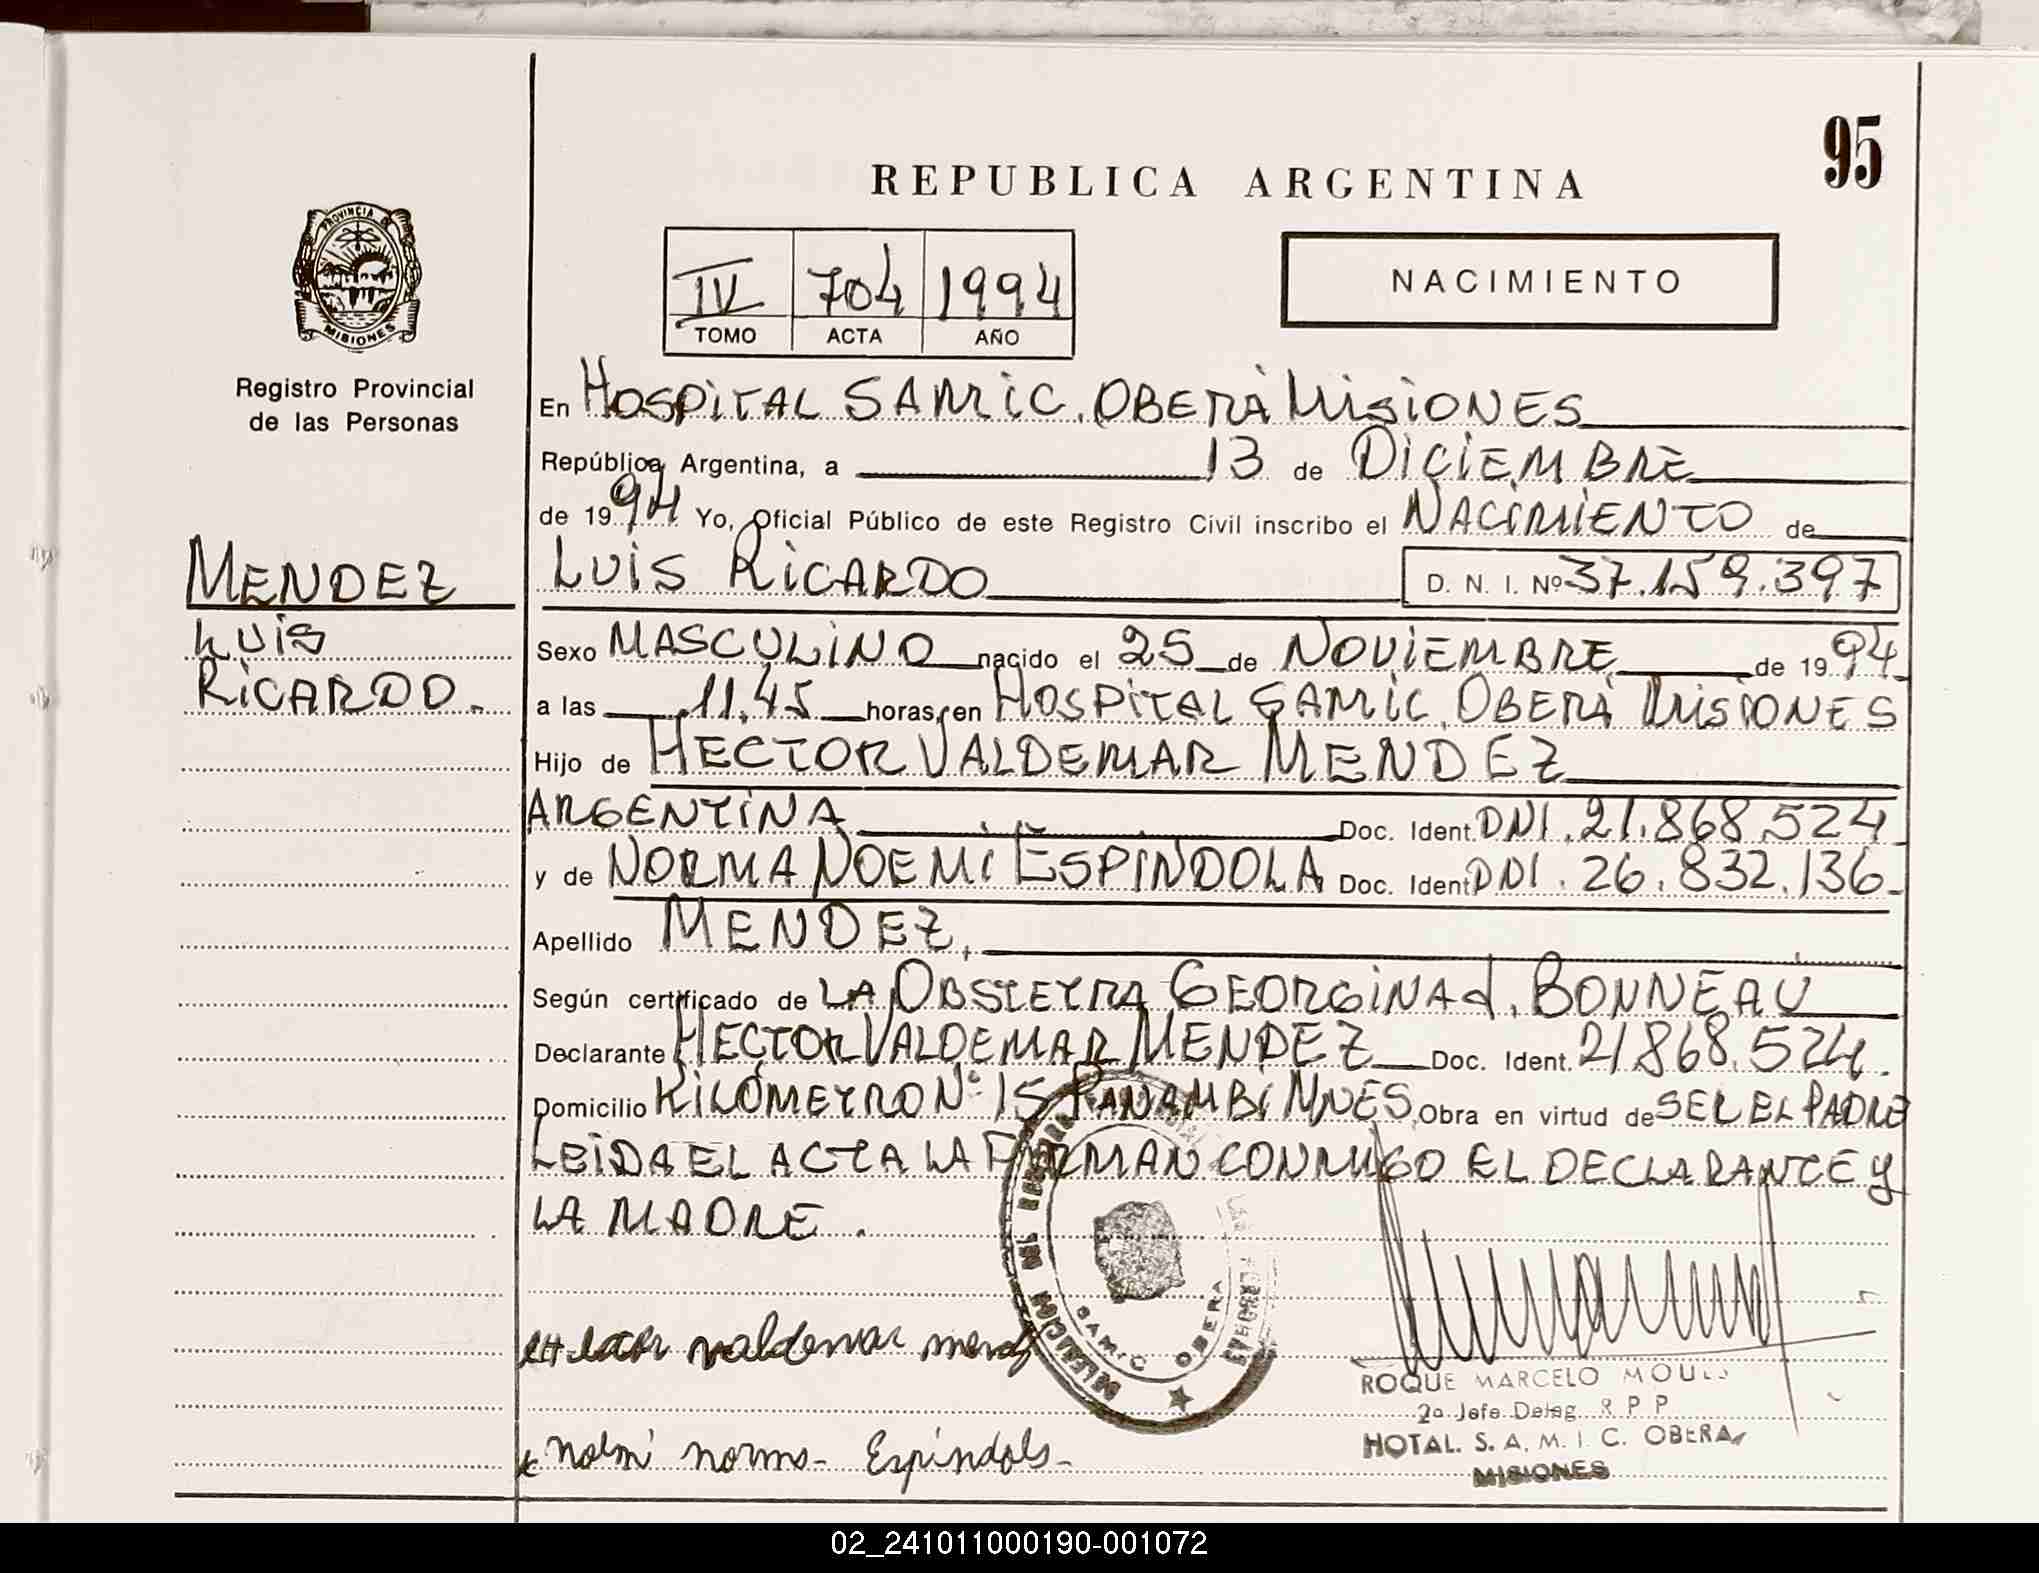 95
REPUBLICA ARGENTINA
PROVINCIA DE
MISIONES
Registro Provincial
de las Personas
IV 704 1994
TOMO ACTA AÑO
NACIMIENTO
En HOSPITAL SAMIC. OBERÁ MISIONES
República Argentina, a 13 de DICIEMBRE
de 1994 Yo, Oficial Público de este Registro Civil inscribo el NACIMIENTO de
MENDEZ
LUIS
RICARDO.
LUIS RICARDO D. N. I. Nº 37.159.397
Sexo MASCULINO nacido el 25 de NOVIEMBRE de 1994
a las 11,45 horas, en HOSPITAL SAMIC. OBERÁ MISIONES
Hijo de HECTOR VALDEMAR MENDEZ
ARGENTINA Doc. Ident. DNI. 21.868.524
y de NORMA NOEMÍ ESPINDOLA Doc. Ident. DNI. 26.832.136
Apellido MENDEZ,
Según certificado de LA OBSTETRA GEORGINA J. BONNEAU
Declarante HECTOR VALDEMAR MENDEZ Doc. Ident. 21868.524.
Domicilio KILÓMETRO Nº 15 PANAMBÍ MNES. Obra en virtud de SER EL PADRE
LEIDA EL ACTA LA FIRMAN CONMIGO EL DECLARANTE Y
LA MADRE.
DELEGACION DEL
SAMIC OBERA
valdemar
ROQUE MARCELO
2º Jefe Deleg. R P P
HOTAL. S. A. M. I. C. OBERA
MISIONES
x noemi norma- Espindola-
02_241011000190-001072